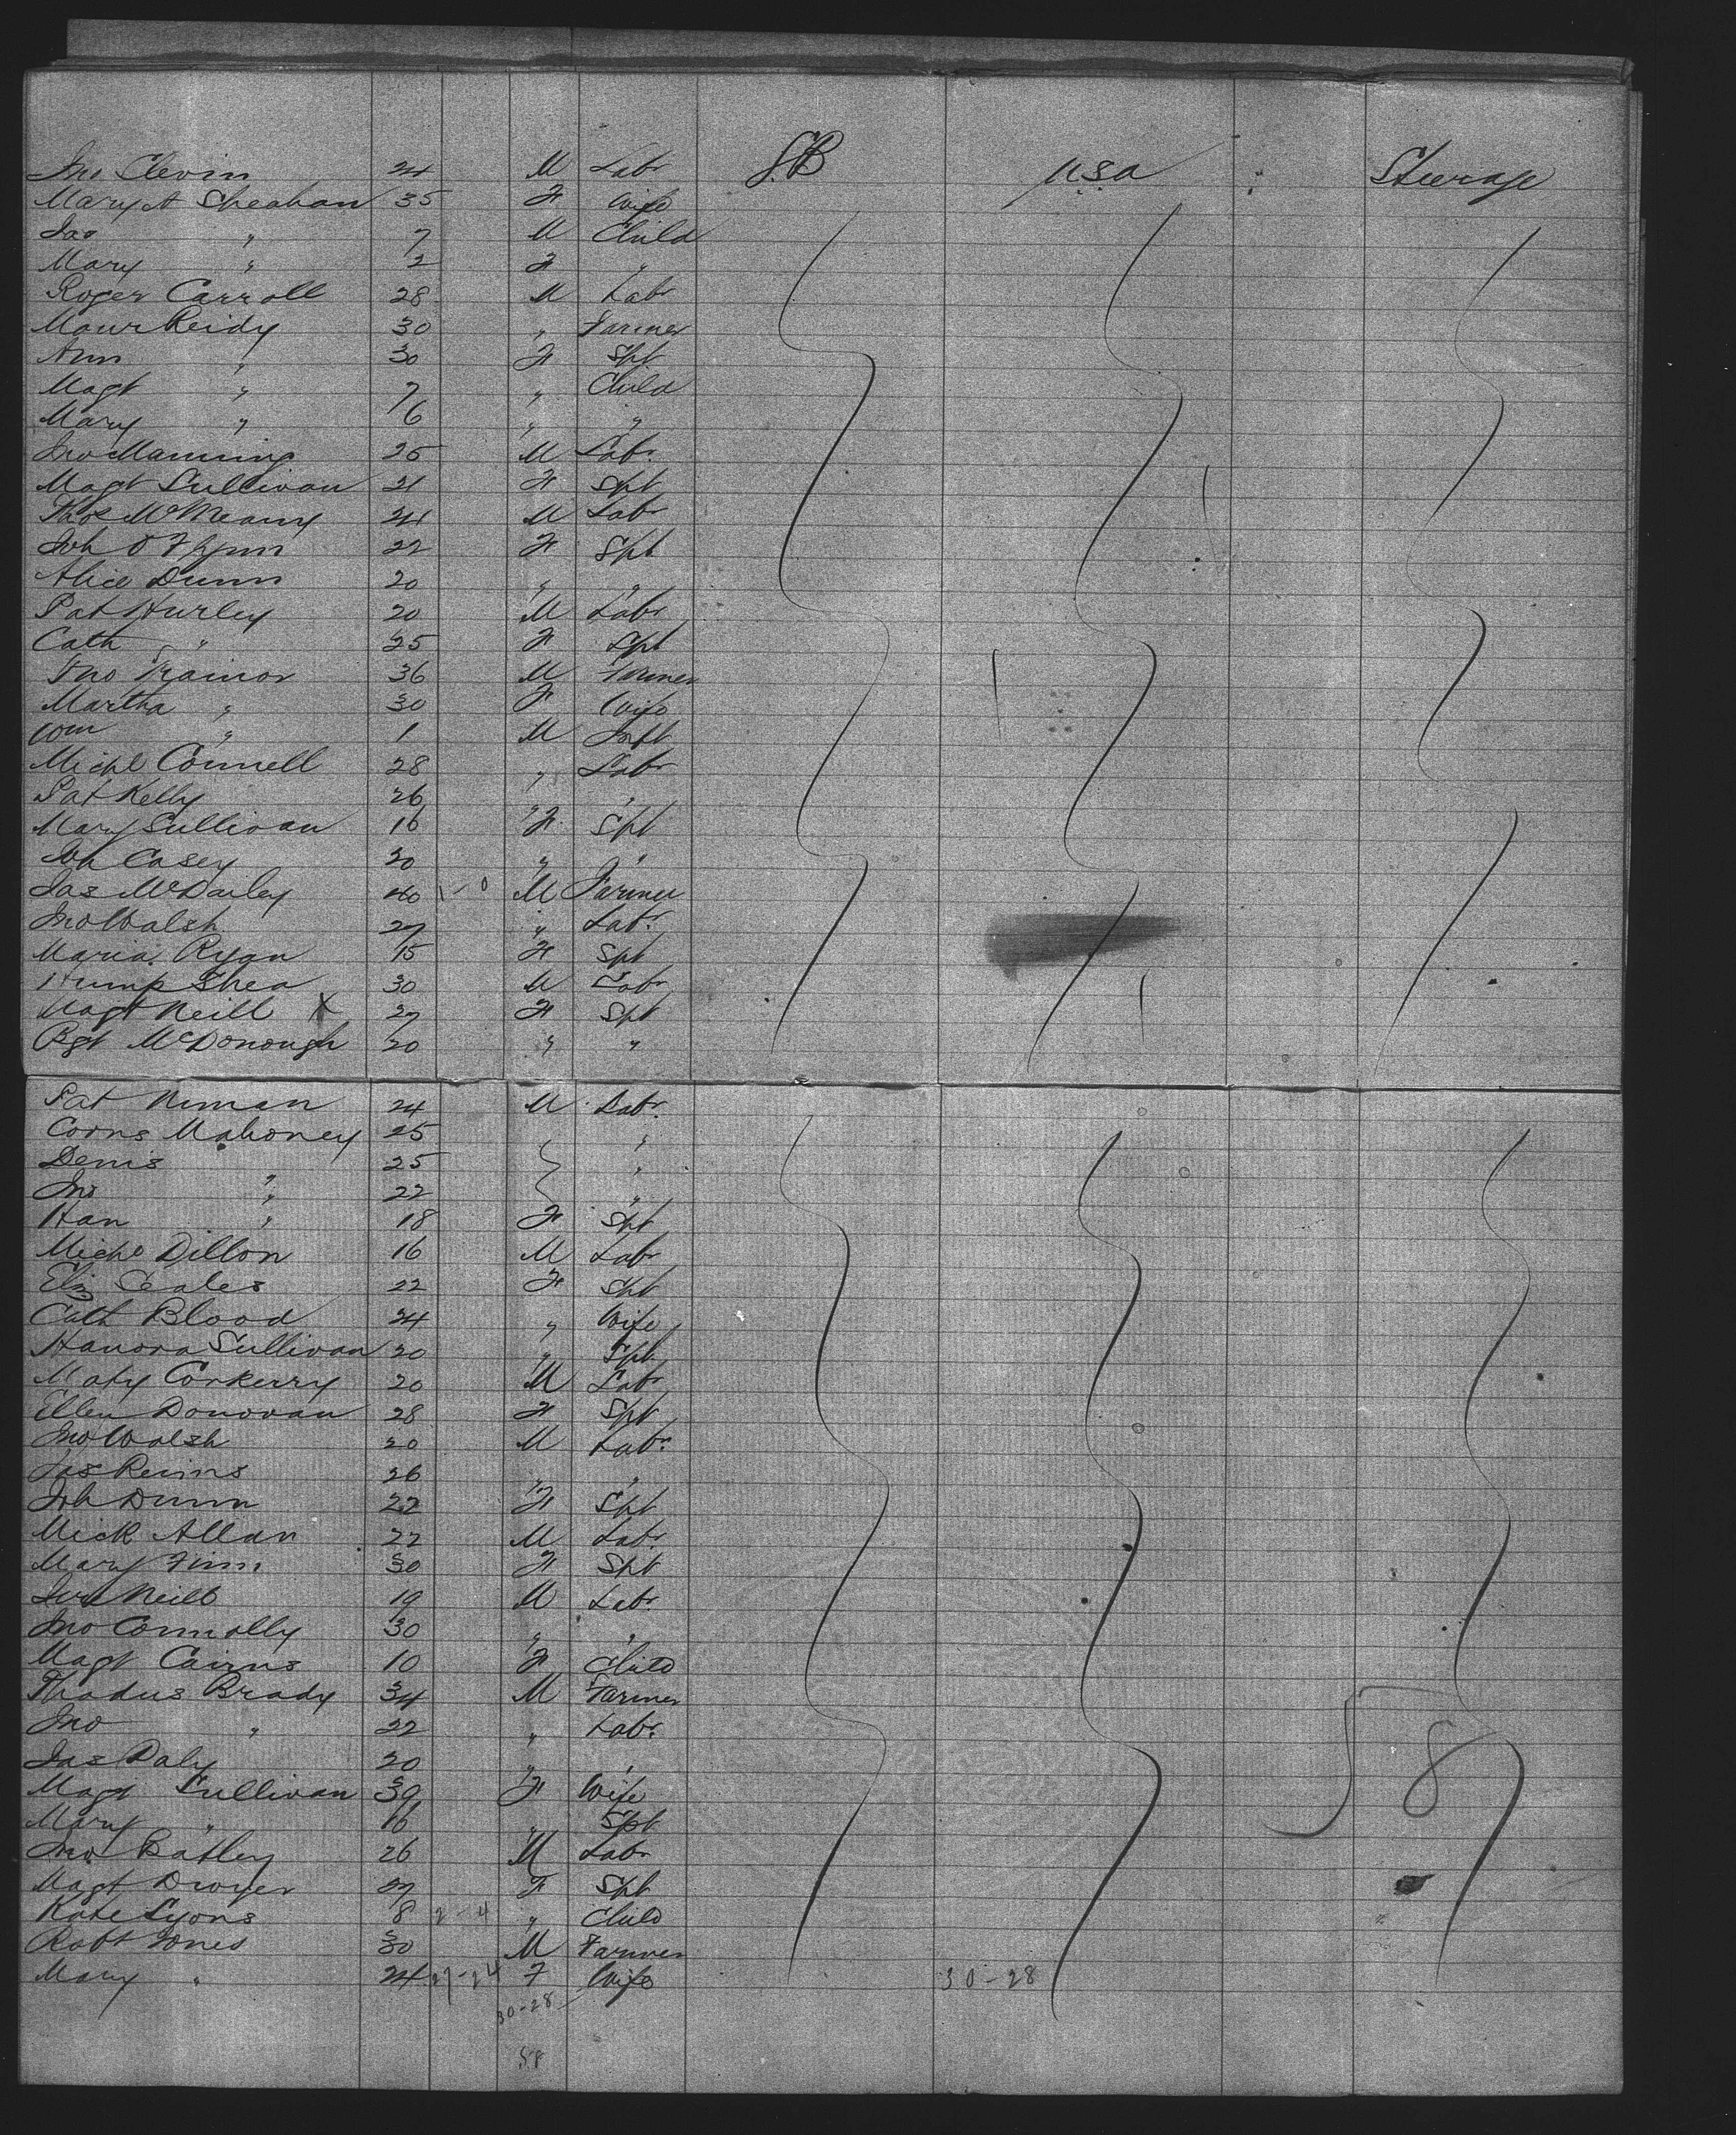 Jno Clevin 24 M Labr GB USA Steerage
Mary A Sheahan 35 F Wife
Jas " 7 M Child
Mary " 2 F "
Roger Carroll 28 M Labr
Maur Reidy 30 " Farmer
Ann " 30 F Spt
Magt " 7 " Child
Mary " 6 " "
Jno Manning 25 M Labr.
Magt Sullivan 21 F Spt
Thos McMeany 24 M Labr
Joh O Flynn 22 F Spt
Alice Dunn 20 " "
Pat Hurley 20 M Labr
Cath " 25 F Spt
Jno Trainor 36 M Farmer
Martha " 30 F Wife
Wm " 1 M Inft
Michl Connell 28 " Labr
Pat Kelly 26 " "
Mary Sullivan 16 F Spt
Joh Casey 20 " "
Jas McDailey 40 1-0 M Farmer
Jno Walsh 27 " Labr.
Maria Ryan 15 F Spt
Hump Shea 30 M Labr
Magt Neill X 27 F Spt
Bgt McDonough 20 " "
Pat 24 M Labr.
Corns Mahoney 25 "
Denis 25 "
Jno " 22 "
Han " 18 F Spt
Michl Dillon 16 M Labr
Eliz Scales 22 F Spt
Cath Blood 24 " Wife
Hanora Sullivan 20 " Spt
Maty Corkerry 20 M Labr
Ellen Donovan 28 F Spt
Jno Walsh 20 M Labr.
Jas 26 " "
Joh Dunn 22 F Spt
Mick Allan 22 M Labr.
Mary Finn 30 F Spt
Neill 19 M Labr.
Jno Connolly 30 " "
Magt Cairns 10 F Child
Thadus Brady 34 M Farmer
Jno " 22 " Labr.
Jas Daly 20 " "
Magt Sullivan 39 F Wife
Mary " 16 " Spt
Jno Batley 26 M Labr
Magt Dwyer 27 F Spt
Kate Lyons 8 2-4 " Child
Robt Jones 30 M Farmer
Mary " 24 27-24 F Wife 30-28
30-28
58
58